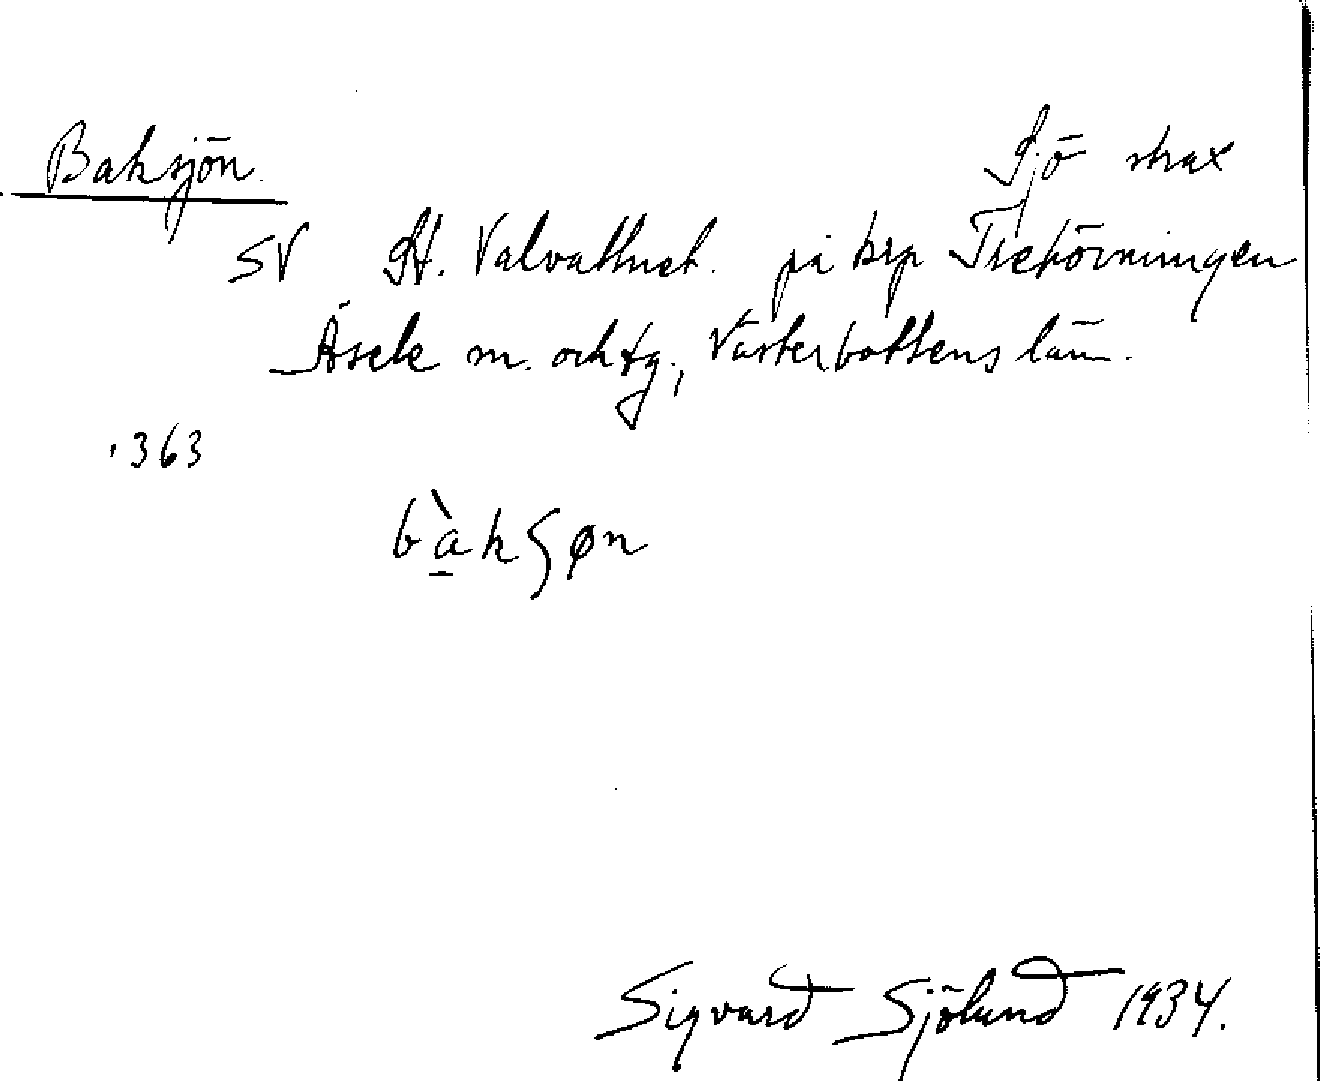 Baksjön. Sjö strax
SV St. Valvattnet. på krp Trehörningen
Åsele sn. och tg., Västerbottens län.
363
bàkSøn
Sigvard Sjölund 1934.